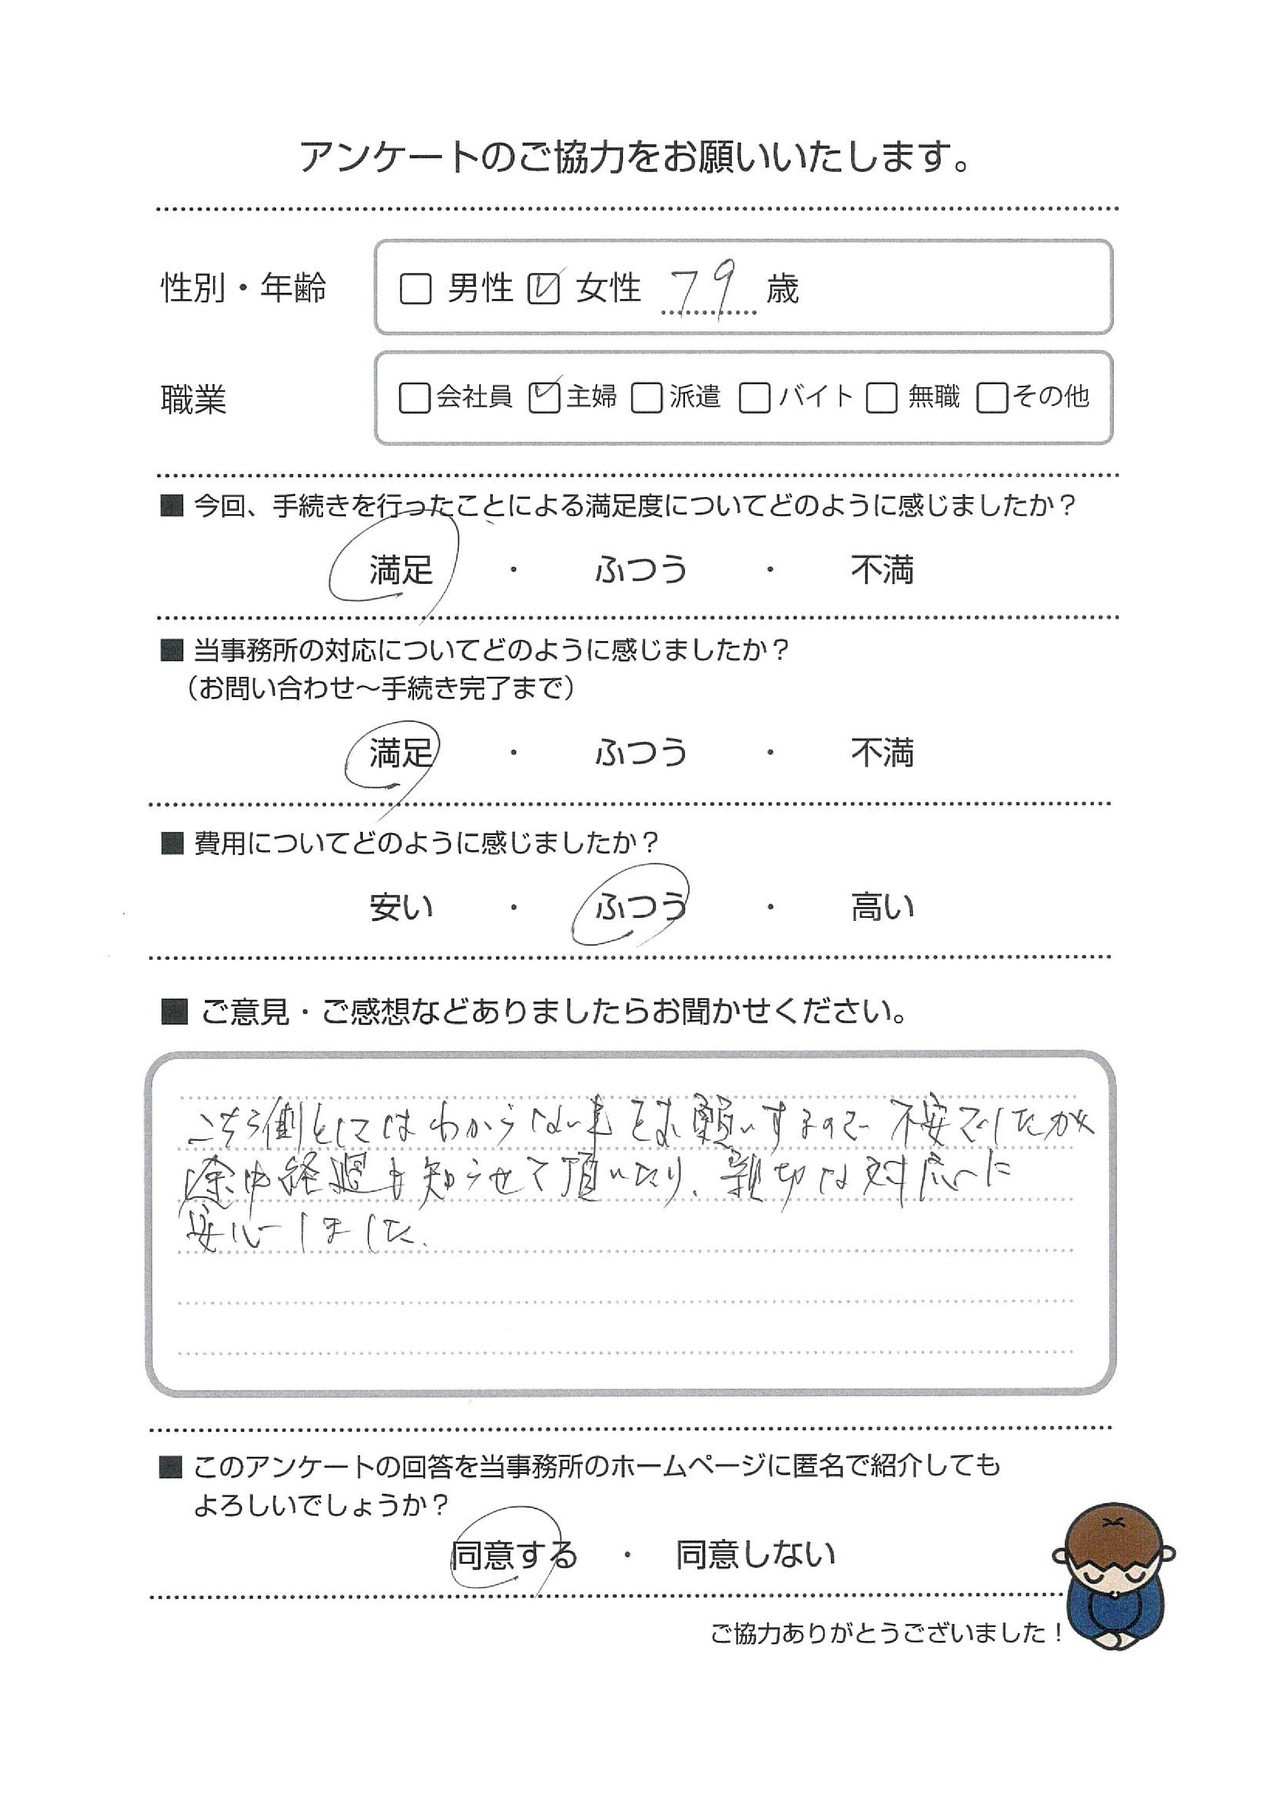 アンケートのご協力をお願いいたします。
性別・年齢 □ 男性 ☑ 女性 79 歳
職業 □会社員 ☑主婦 □派遣 □バイト □無職 □その他
■ 今回、手続きを行ったことによる満足度についてどのように感じましたか？
満足 ・ ふつう ・ 不満
■ 当事務所の対応についてどのように感じましたか？
（お問い合わせ～手続き完了まで）
満足 ・ ふつう ・ 不満
■ 費用についてどのように感じましたか？
安い ・ ふつう ・ 高い
■ ご意見・ご感想などありましたらお聞かせください。
こちら側としてはわからない事をお願いするので不安でしたが
途中経過も知らせて頂いたり、親切な対応に
安心しました.
■ このアンケートの回答を当事務所のホームページに匿名で紹介しても
よろしいでしょうか？
同意する ・ 同意しない
ご協力ありがとうございました！